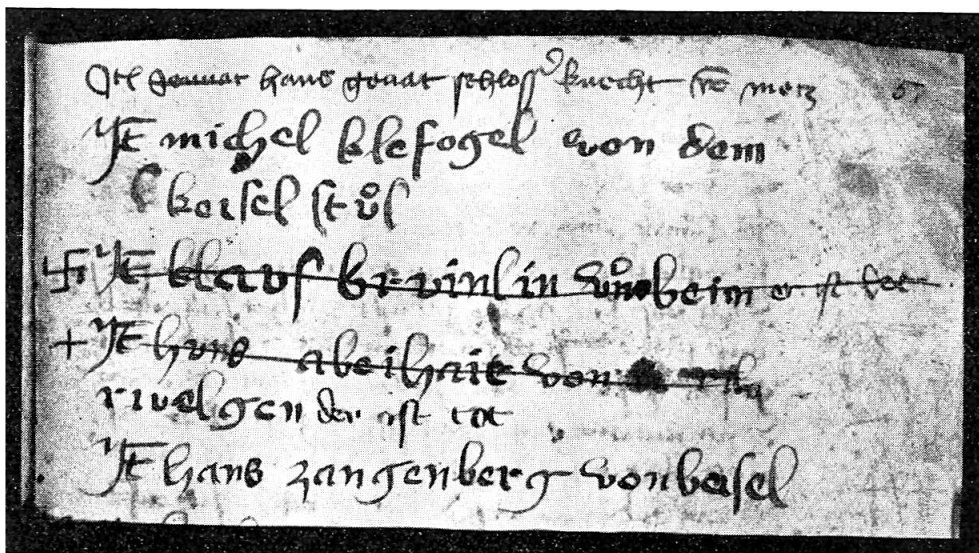 Itē gonnat hans gonat schlosſ knecht vō metz
Jtē michel klefogel von dem
keisel ſtuͦl
Jtē klauſ brvinlin vonbeim er iſt tot
Jtē hans abeihait von
rivelgen der iſt tot
Jtē hans zangenberg vonbeſel